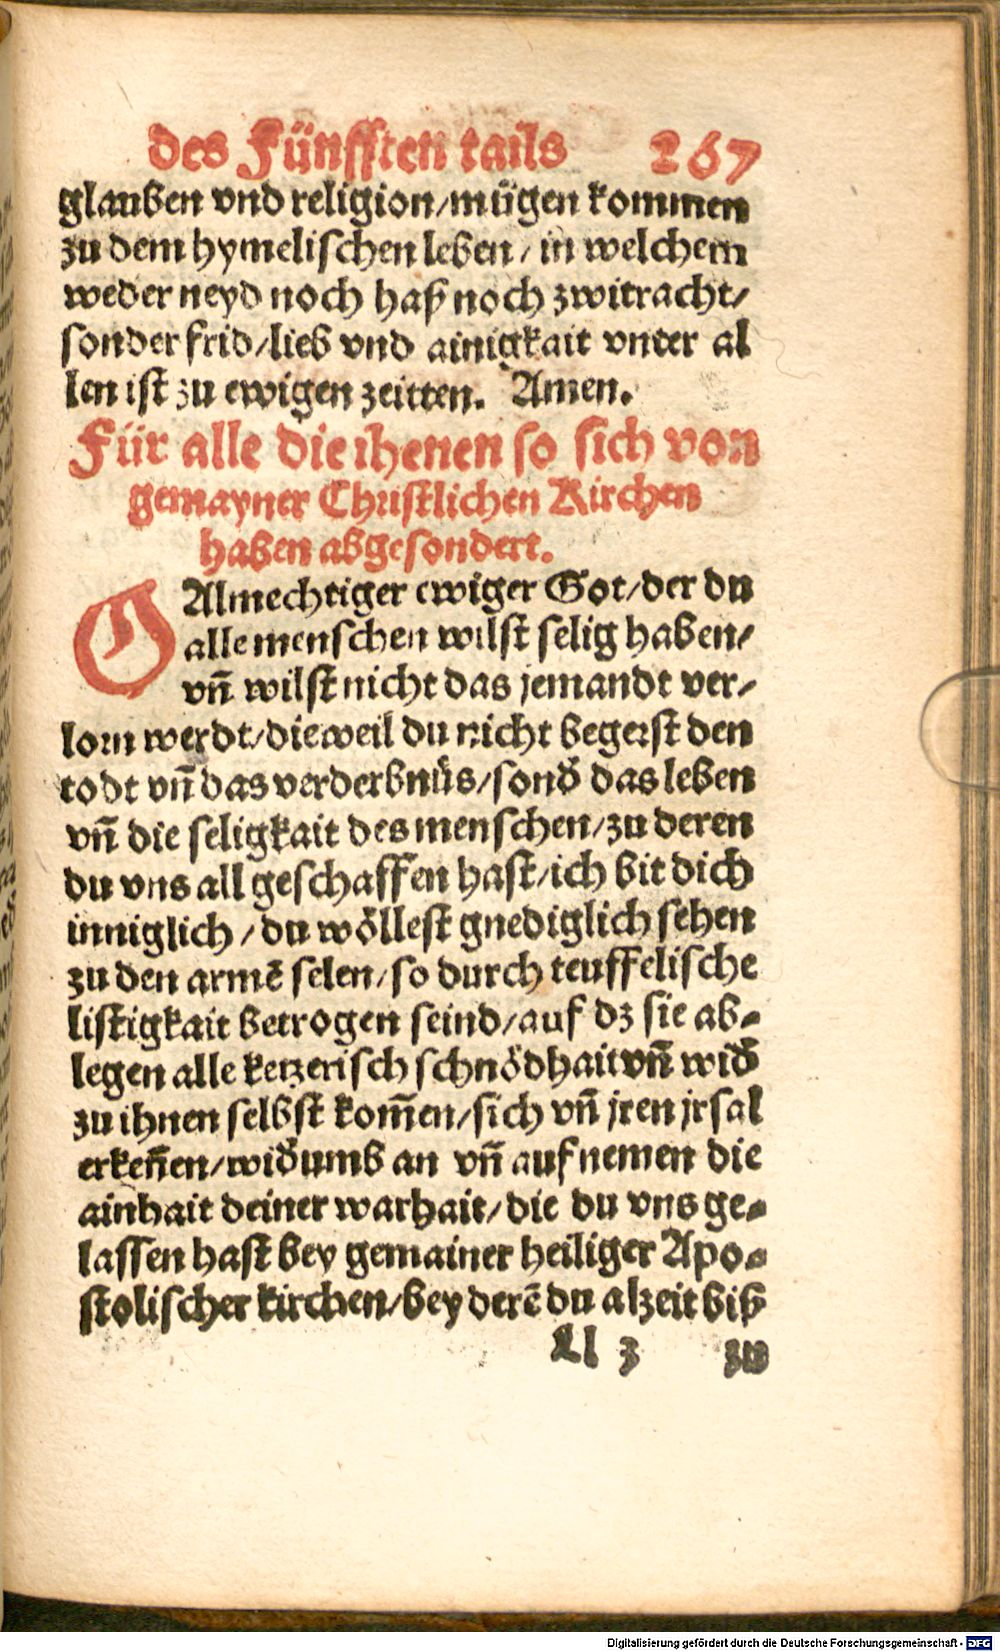 des Fünfften tails 267
glauben vnd religion/mügen kommen
zu dem hymelischen leben/ in welchem
weder neyd noch haß noch zwitracht/
sonder frid/lieb vnd ainigkait vnter al
len ist zu ewigen zeitten. Amen.
Für alle die ihenen so sich von
gemayner Christlichen Kirchen
haben abgesondert.
O Almechtiger ewiger Got/der du
alle menschen wilst selig haben/
vñ wilst nicht das jemandt ver-/
lorn werdt/dieweil du nicht begerst den
todt vñ das verderbnüs/sonď das leben
vñ die seligkait des menschen/zu deren
du vns all geschaffen hast/ich bit dich
inniglich/du wöllest gnediglich sehen
zu den armē selen/so durch teuffelische
listigkait betrogen seind/auf dz sie ab-
legen alle ketzerisch schnödhait vñ wiď
zu ihnen selbst kom̄en/sich vñ jren jrsal
erkeñen/wiďumb an vñ auf nemen die
ainhait deiner warhait/die du vns ge-
lassen hast bey gemainer heiliger Apo-
stolischer kirchen/bey derē du alzeit biß
Ll 3 zu
Digitalisierung gefördert durch die Deutsche Forschungsgemeinschaft - DFG